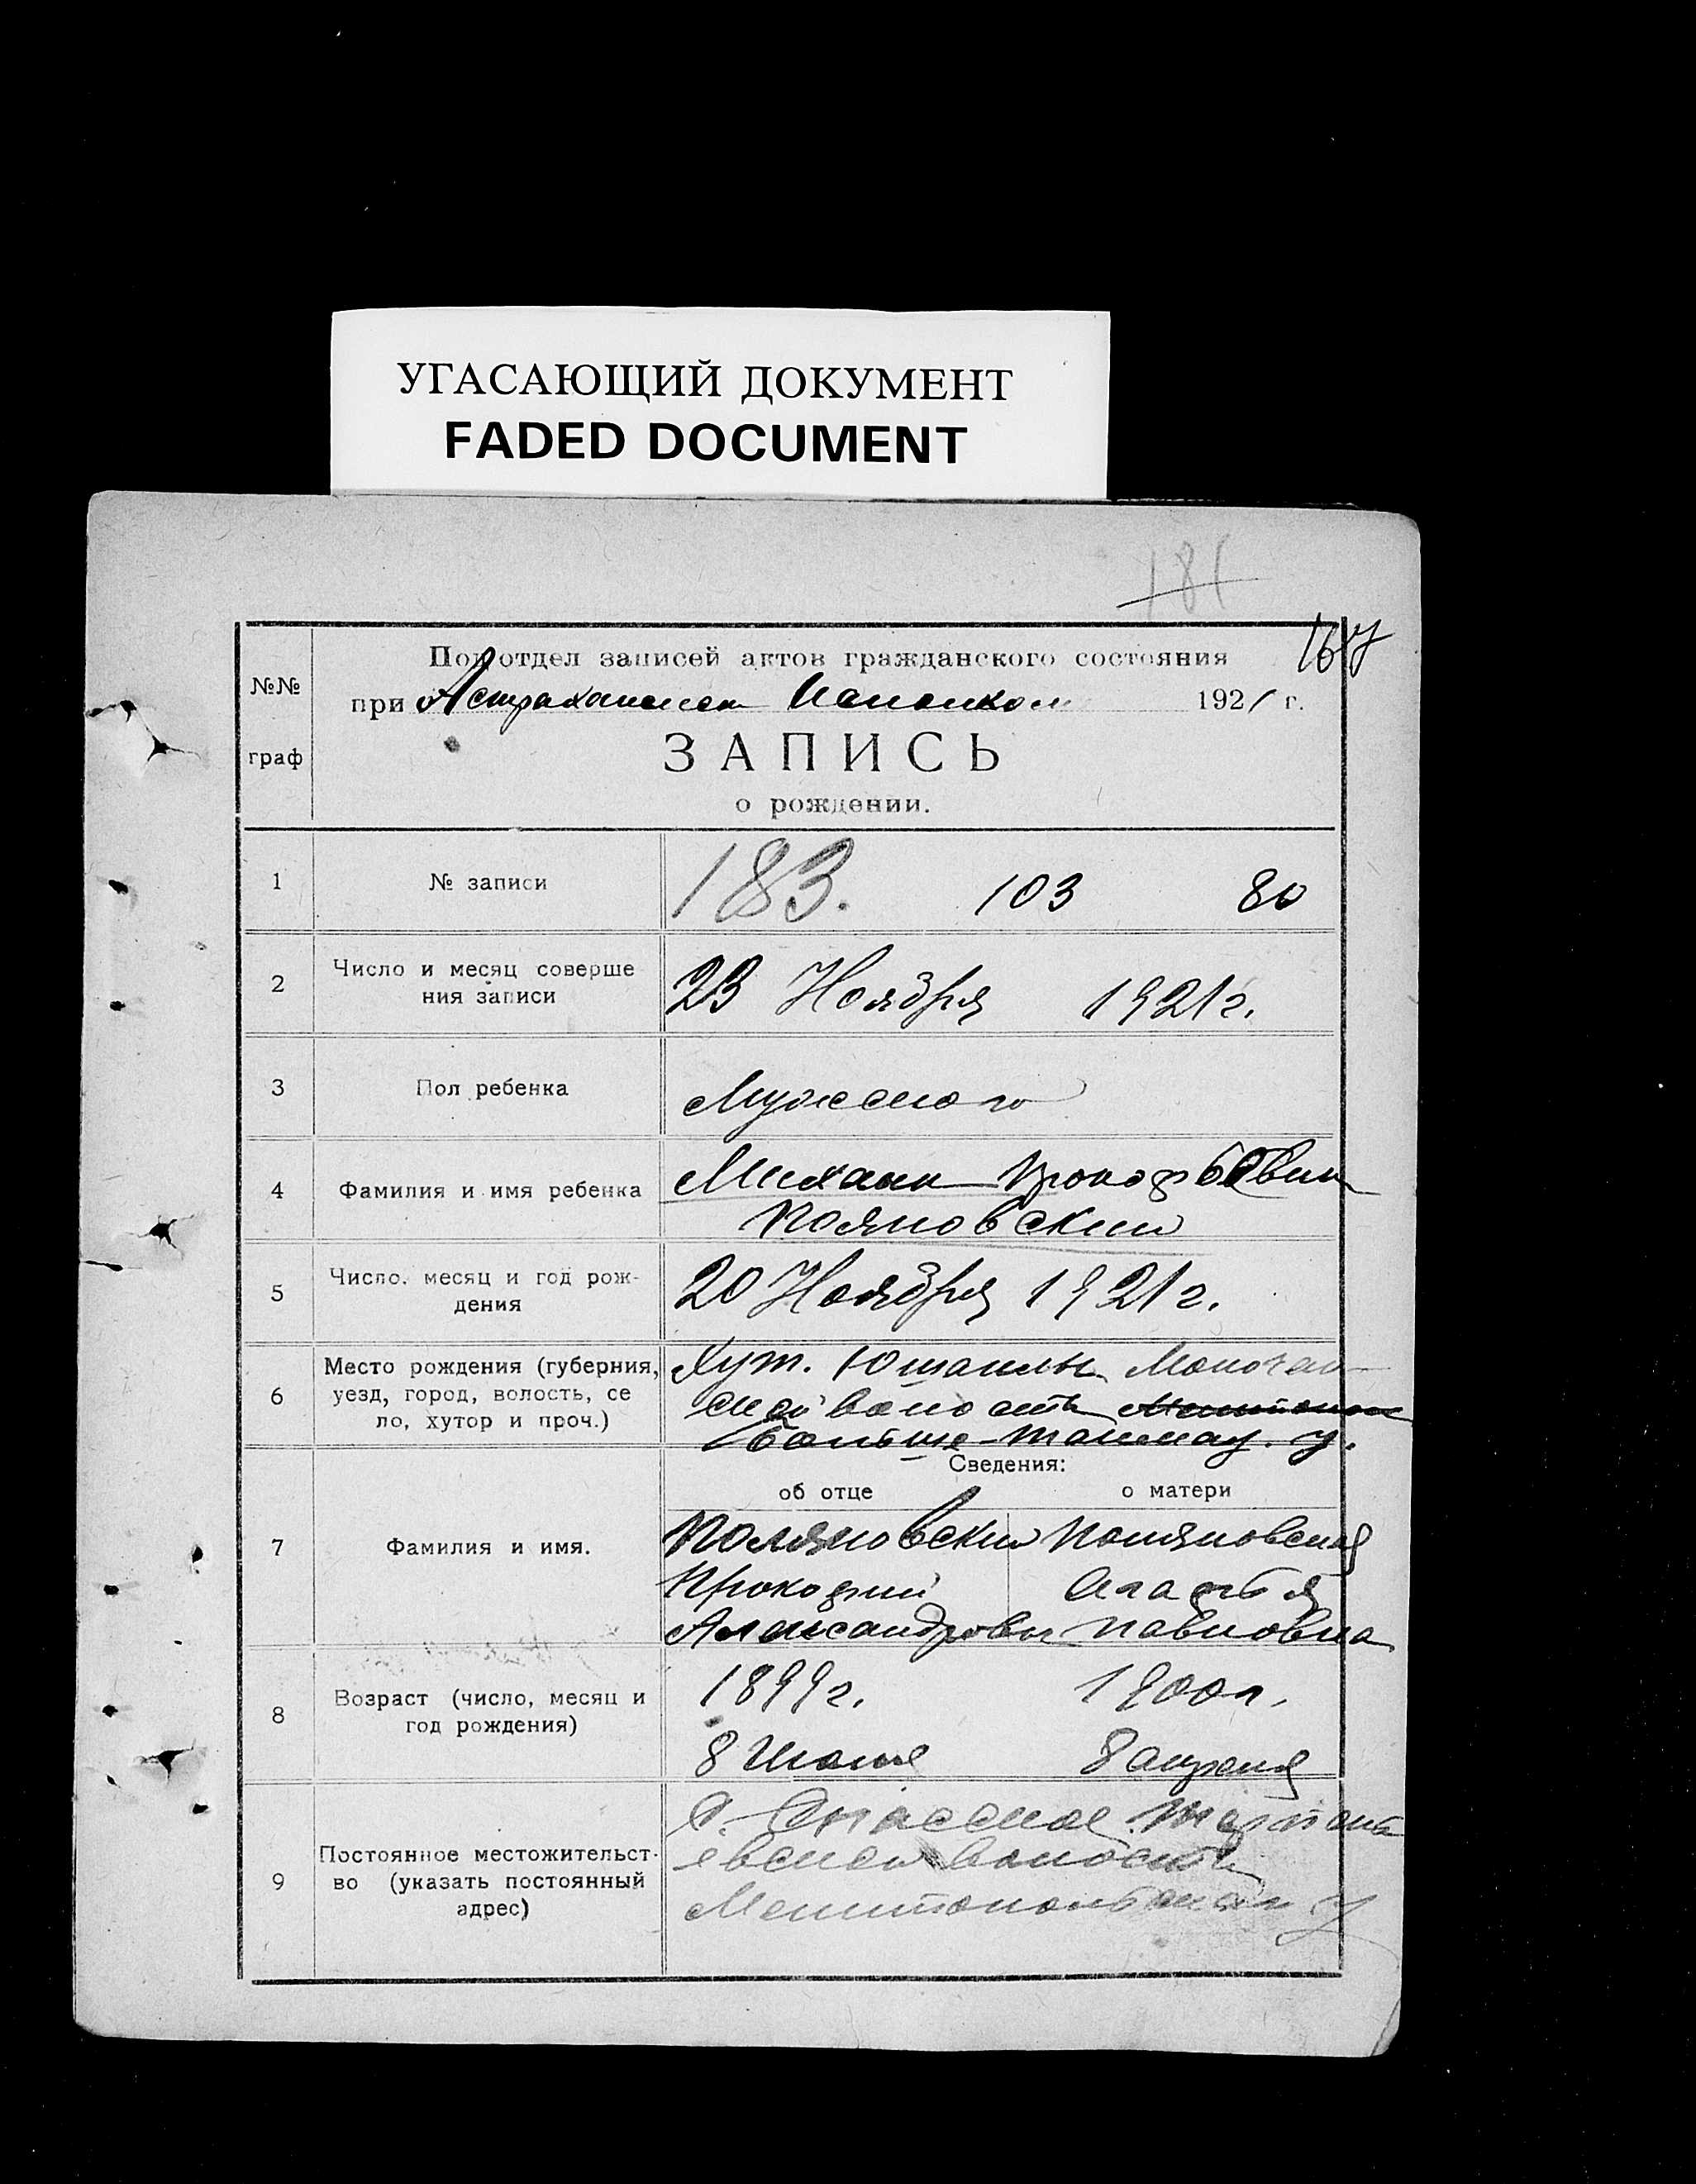 УГАСАЮЩИЙ ДОКУМЕНТ
FADED DOCUMENT
181
№№ граф
Подотдел записей актов гражданского состояния
при Астраханском 1921 г.
ЗАПИСЬ
о рождении.
1 № записи 183. 103 80
2 Число и месяц соверше
ния записи 23 Ноября 1921 г.
3 Пол ребенка Мужского
4 Фамилия и имя ребенка Михаил Прокофьевич
Поляновский
5 Число, месяц и год рож-
дения 20 Ноября 1921 г.
6 Место рождения (губерния,
уезд, город, волость, се
ло, хутор и проч.) Хут. Юшанлы Молочан
ской волости
Больше-Токмац. у.
Сведения:
об отце о матери
7 Фамилия и имя.
Поляновский Поляновская
Прокофий Агафья
Александрович Павловна
8 Возраст (число, месяц и
год рождения)
1899 г. 1900 г.
8 Июля 8 апреля
9 Постоянное местожительст-
во (указать постоянный
адрес)
С. Спасское
волости
Мелитопольского у